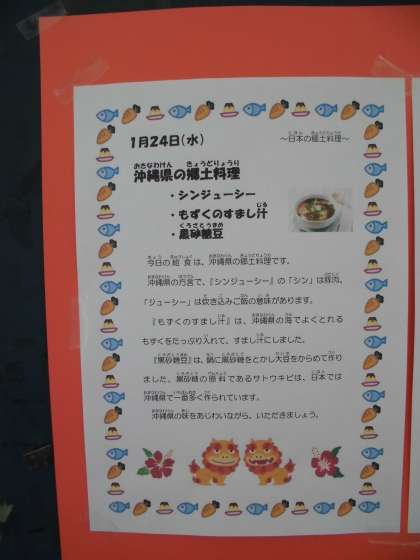 1月24日(水)
～日本の郷土料理～
沖縄県の郷土料理
・シンジューシー
・もずくのすまし汁
・黒砂糖豆
今日の給食は、沖縄県の郷土料理です。
沖縄県の方言で、『シンジューシー』の「シン」は豚肉、
「ジューシー」は炊き込みご飯の意味があります。
『もずくのすまし汁』は、沖縄県の海でよくとれる
もずくをたっぷり入れて、すまし汁にしました。
『黒砂糖豆』は、鍋に黒砂糖をとかし大豆をからめて作り
ました。黒砂糖の原料であるサトウキビは、日本では
沖縄県で一番多く作られています。
沖縄県の味をあじわいながら、いただきましょう。